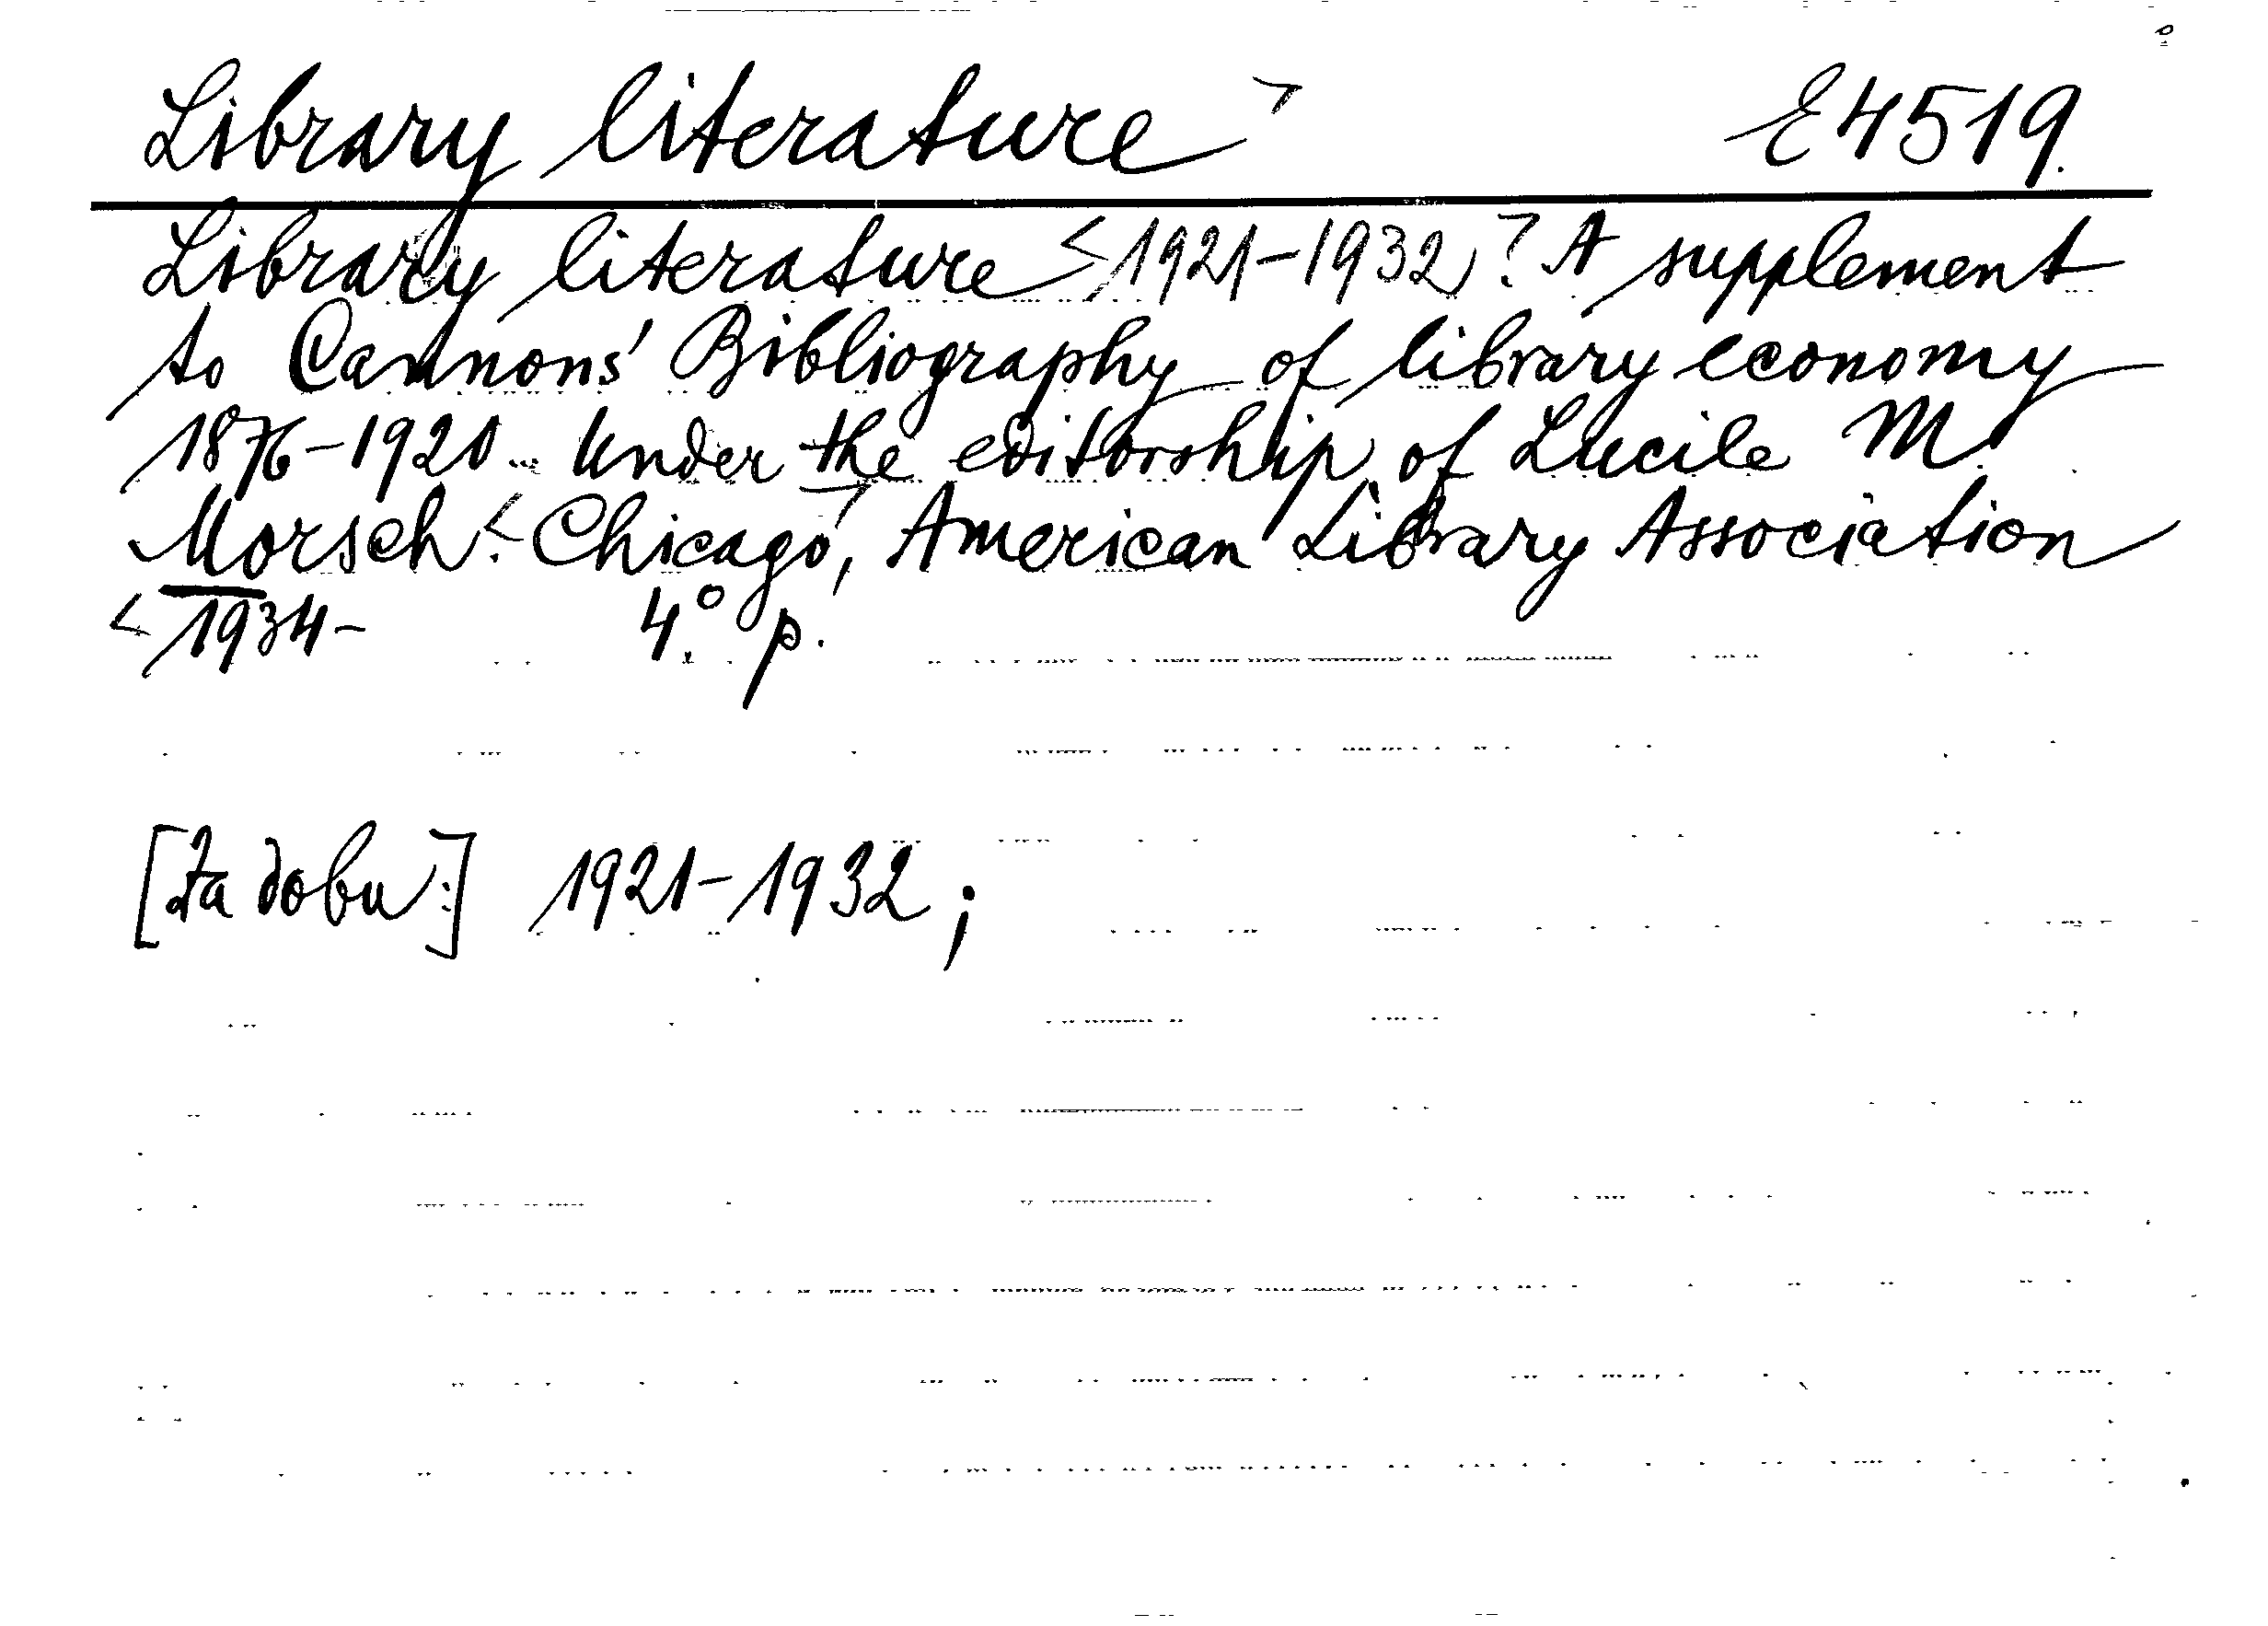 Library literature E4519.
Library literature <1921-1932>. A supplement
to Cannons' Bibliography of library economy
1876-1920... Under the editorship of Lucile M.
Morsch. <Chicago>, American Library Association
<1934- 4.° p.
[Za dobu:] 1921-1932;